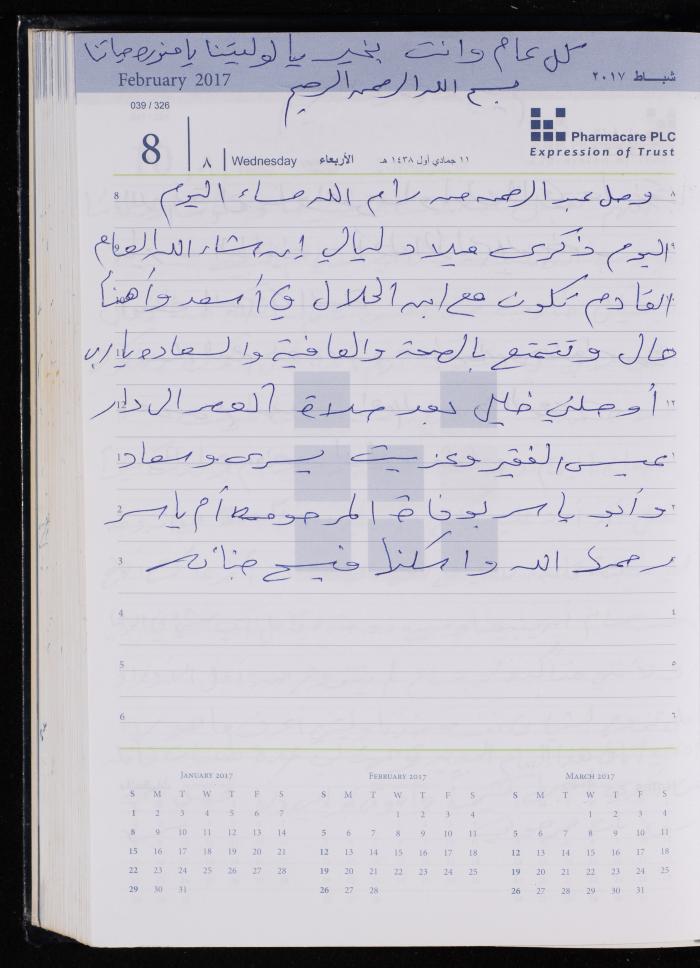 كل عام وانت بخير يا لوليتنا يا منوره حياتنا
February 2017
شباط ٢٠١٧
بسم الله الرحمن الرحيم
039 / 326
8
٨
Wednesday
الأربعاء
١١ جمادي أول ١٤٣٨ هـ
Pharmacare PLC
Expression of Trust
8 وصل عبد الرحمن من رام الله مساء اليوم ٨
اليوم ذكرى ميلاد ليالي إن شاء الله العام
القادم تكون مع ابن الحلال في أسعد وأهنأ
حال وتتمتع بالصحة والعافية والسعاده يا رب
أوصلني خليل بعد صلاة العصر الى دار ١٢
عيسى الفقير وعزيت يسرى وسعاد
2 وأبو ياسر بوفاة المرحومه أم ياسر ٢
3 رحمها الله وأسكنها فسيح جناته
4 ٤
5 ٥
6 ٦
January 2017
S M T W T F S
1 2 3 4 5 6 7
8 9 10 11 12 13 14
15 16 17 18 19 20 21
22 23 24 25 26 27 28
29 30 31
February 2017
S M T W T F S
1 2 3 4
5 6 7 8 9 10 11
12 13 14 15 16 17 18
19 20 21 22 23 24 25
26 27 28
March 2017
S M T W T F S
1 2 3 4
5 6 7 8 9 10 11
12 13 14 15 16 17 18
19 20 21 22 23 24 25
26 27 28 29 30 31